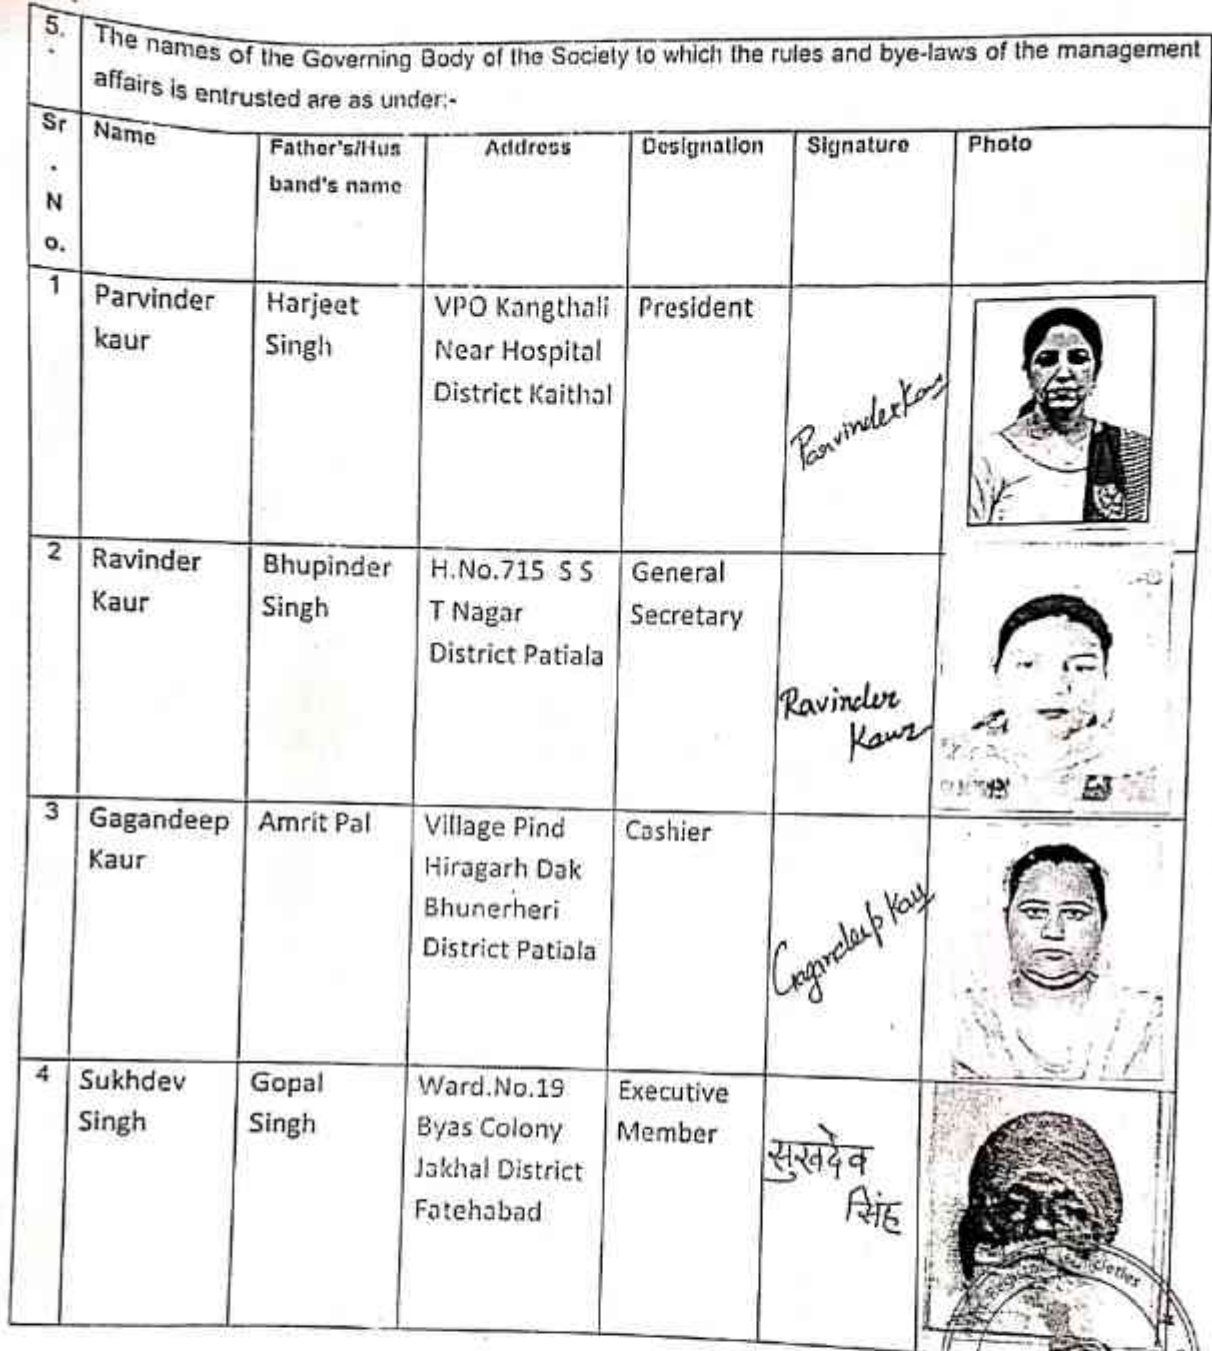 5.
.
The names of the Governing Body of the Society to which the rules and bye-laws of the management
affairs is entrusted are as under:-
Sr
.
N
o.
Name
Father's/Hus
band's name
Address
Designation
Signature
Photo
1
Parvinder
kaur
Harjeet
Singh
VPO Kangthali
Near Hospital
District Kaithal
President
Parvinder Kaur
2
Ravinder
Kaur
Bhupinder
Singh
H.No.715 S S
T Nagar
District Patiala
General
Secretary
Ravinder
Kaur
3
Gagandeep
Kaur
Amrit Pal
Village Pind
Hiragarh Dak
Bhunerheri
District Patiala
Cashier
Gagandeep Kaur
4
Sukhdev
Singh
Gopal
Singh
Ward.No.19
Byas Colony
Jakhal District
Fatehabad
Executive
Member
सुखदेव
सिंह
Societies